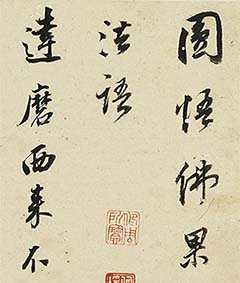 圓悟佛果
法語
達磨西来不